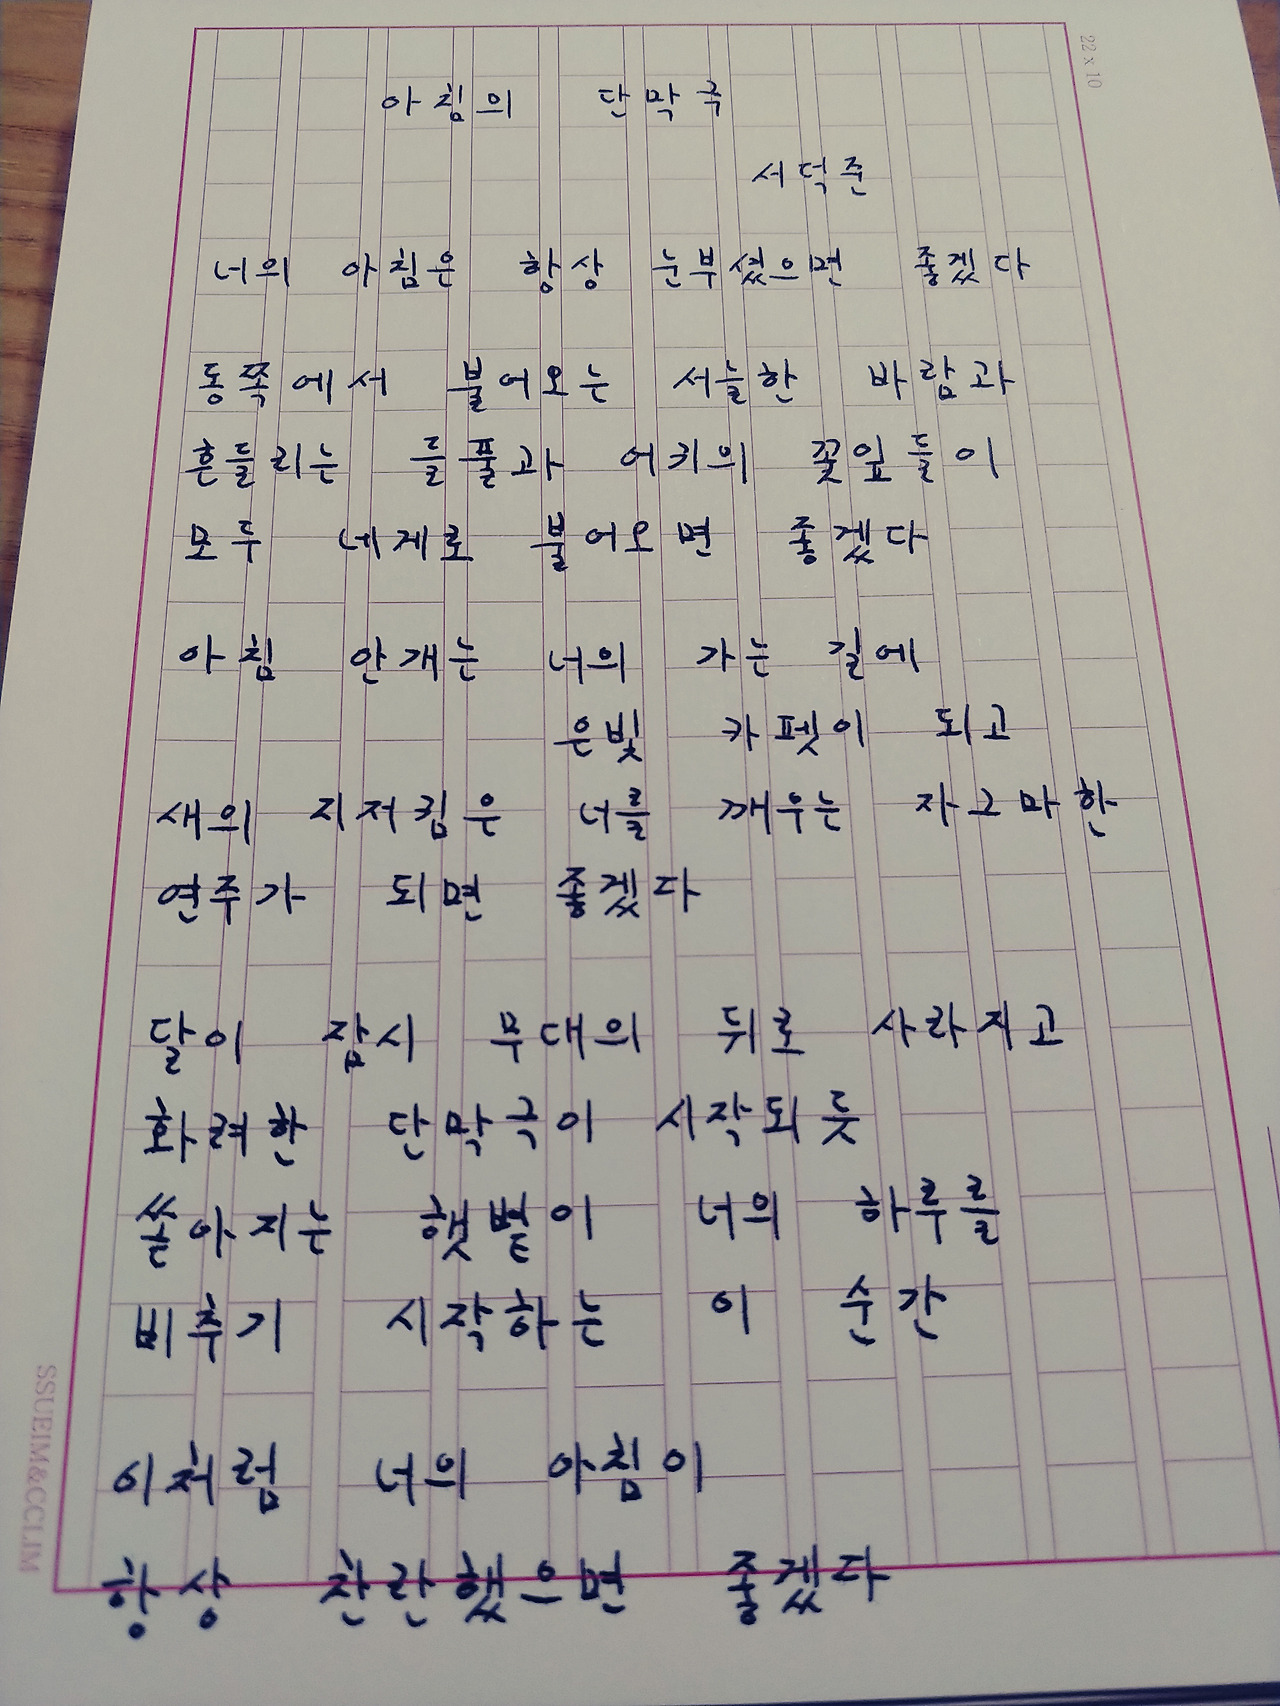 22 x 10
아침의 단막극
서덕준
너의 아침은 항상 눈부셨으면 좋겠다
동쪽에서 불어오는 서늘한 바람과
흔들리는 들풀과 어귀의 꽃잎들이
모두 네게로 불어오면 좋겠다
아침 안개는 너의 가는 길에
은빛 카펫이 되고
새의 지저귐은 너를 깨우는 자그마한
연주가 되면 좋겠다
달이 잠시 무대의 뒤로 사라지고
화려한 단막극이 시작되듯
쏟아지는 햇볕이 너의 하루를
비추기 시작하는 이 순간
이처럼 너의 아침이
항상 찬란했으면 좋겠다
SSUEIM&CCLIM